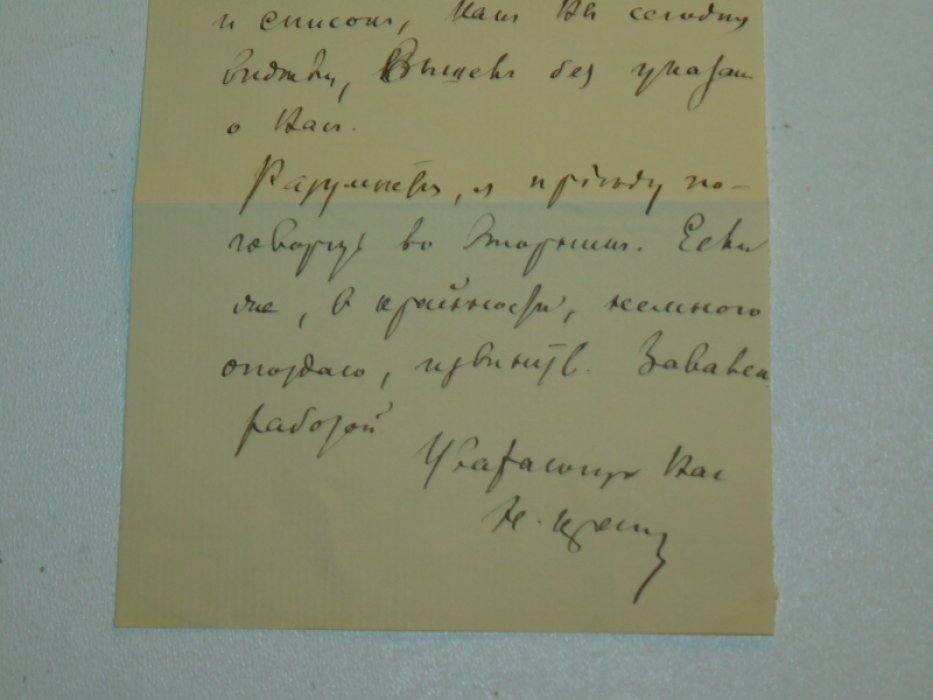 и список, как Вы сегодня
видели, без указан
о Вас.
Разумеется, я приеду по-
говорить во вторник. Если
же, в крайности, немного
опоздаю, извините. Завален
работой
Уважающий Вас
Н.